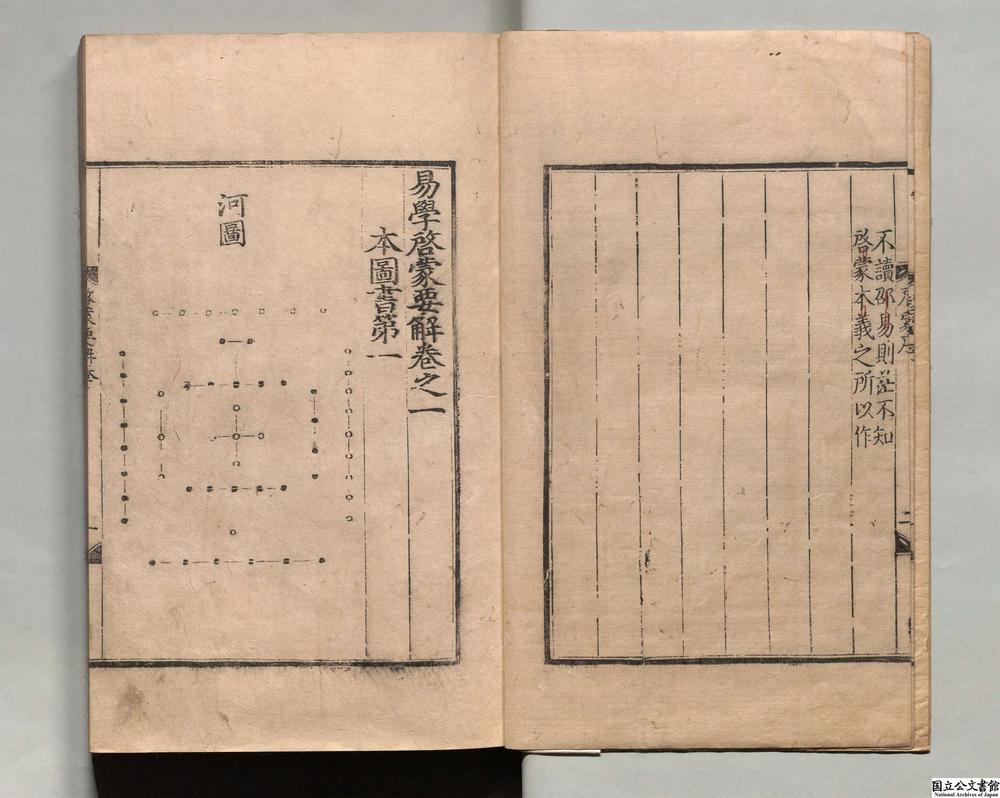 不讀邵易則茫不知
啓蒙本義之所以作
二
易學啓蒙要解卷之一
本圖書第一
河圖
一
国立公文書館
National Archives of Japan